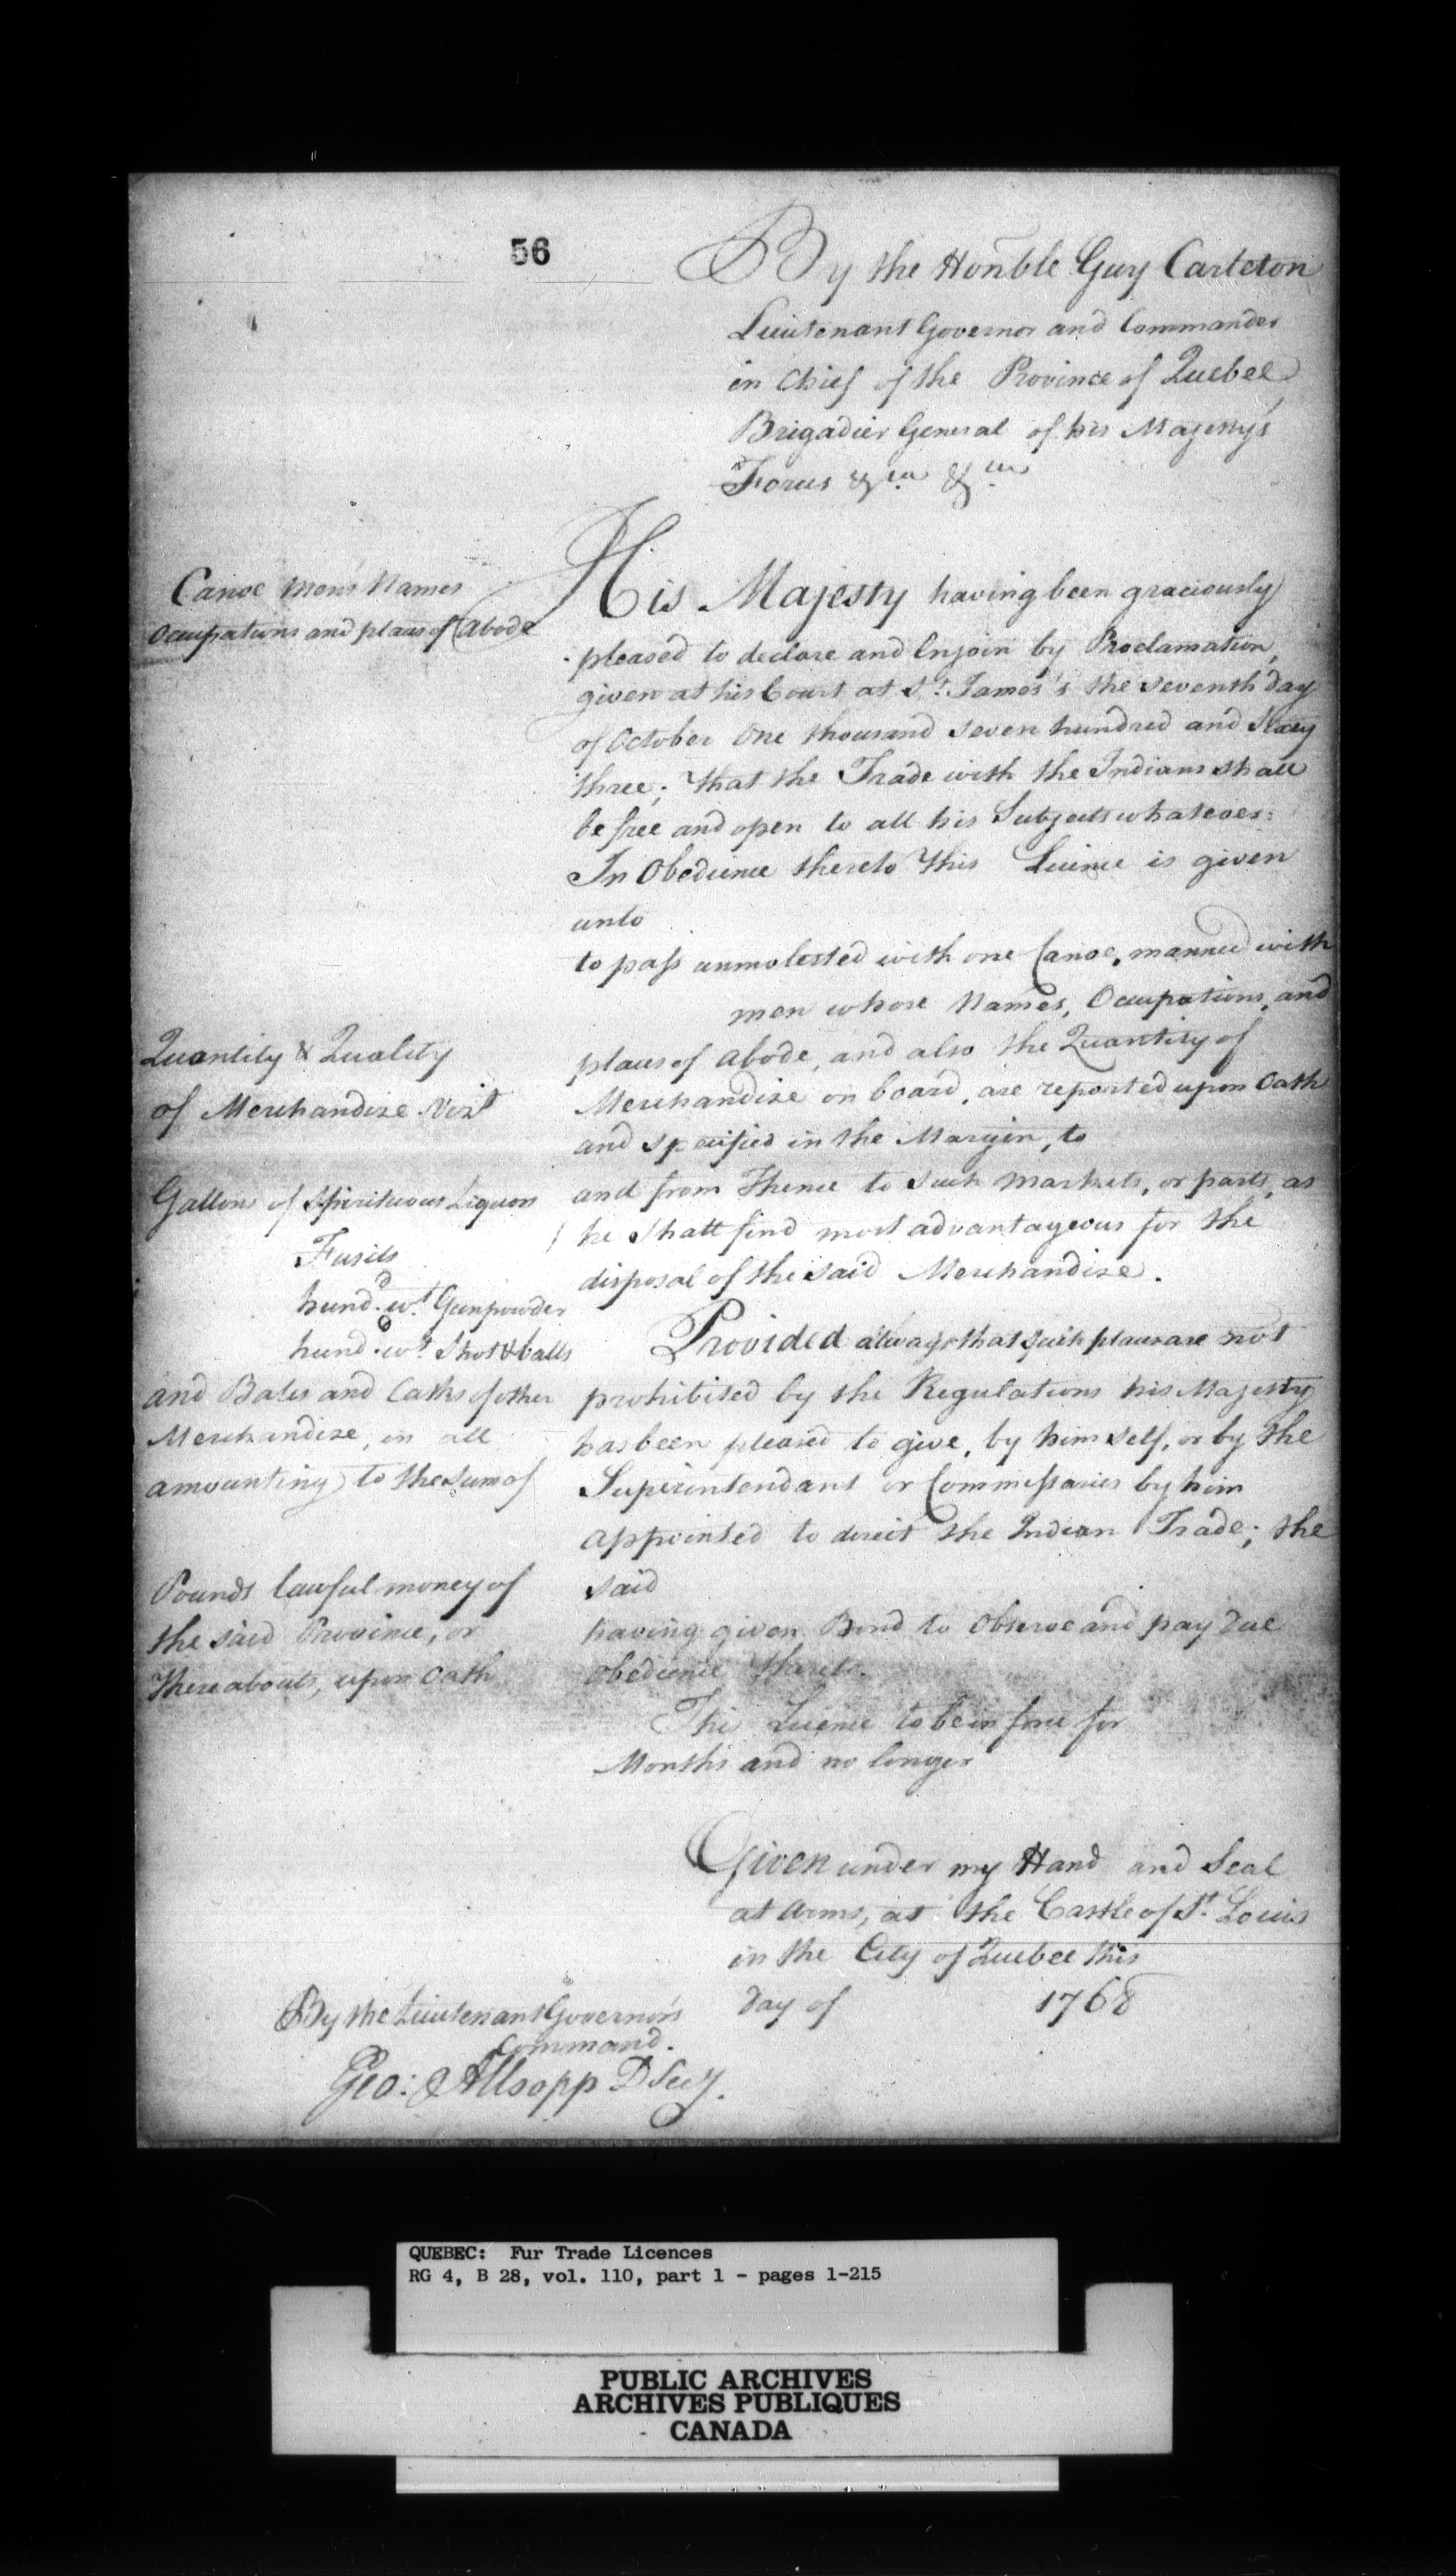 56
By the Honble Guy Carleton
Lieutenant Governor and Commander
in Chief of the Province of Quebec
Brigadier General of his Majesty's
Forces &ca &ca
Canoe men's Names
Occupations and places of Abode
His Majesty having been graciously
pleased to declare and Enjoin by Proclamation,
given at his Court at St. James's the seventh day
of October One thousand seven hundred and Sixty
three; That the Trade with the Indians shall
be free and open to all his Subjects whatever:
In Obedience thereto This Licence is given
unto
to pass unmolested with one Canoe, manned with
men whose Names, Occupations, and
places of abode, and also the Quantity of
Merchandize on board, are reported upon Oath
and specified in the Margin, to
and from Thence to such markets, or parts, as
he shall find most advantageous for the
disposal of the said Merchandize.
Quantity & Quality
of Merchandize Vizt
Gallons of Spirituous Liquors
Fusils
hund.d wt. Gunpowder
hund.d wt. Shot & balls
and Bales and Casks of other
Merchandize, in all
amounting to the sum of
Pounds lawful money of
the said Province, or
Thereabouts, upon Oath
Provided always that such places are not
prohibited by the Regulations his Majesty
has been pleased to give, by himself, or by the
Superintendant or Commissaries by him
appointed to direct the Indian Trade; the
said
having given Bond to Observe and pay due
obedience thereto.
This Licence to be in force for
Months and no longer
Given under my Hand and Seal
at Arms, at the Castle of St. Louis
in the City of Quebec this
day of 1768
By the Lieutenant Governor's
Command.
Geo: Allsopp D Secy.
QUEBEC: Fur Trade Licences
RG 4, B 28, vol. 110, part 1 - pages 1-215
PUBLIC ARCHIVES
ARCHIVES PUBLIQUES
CANADA